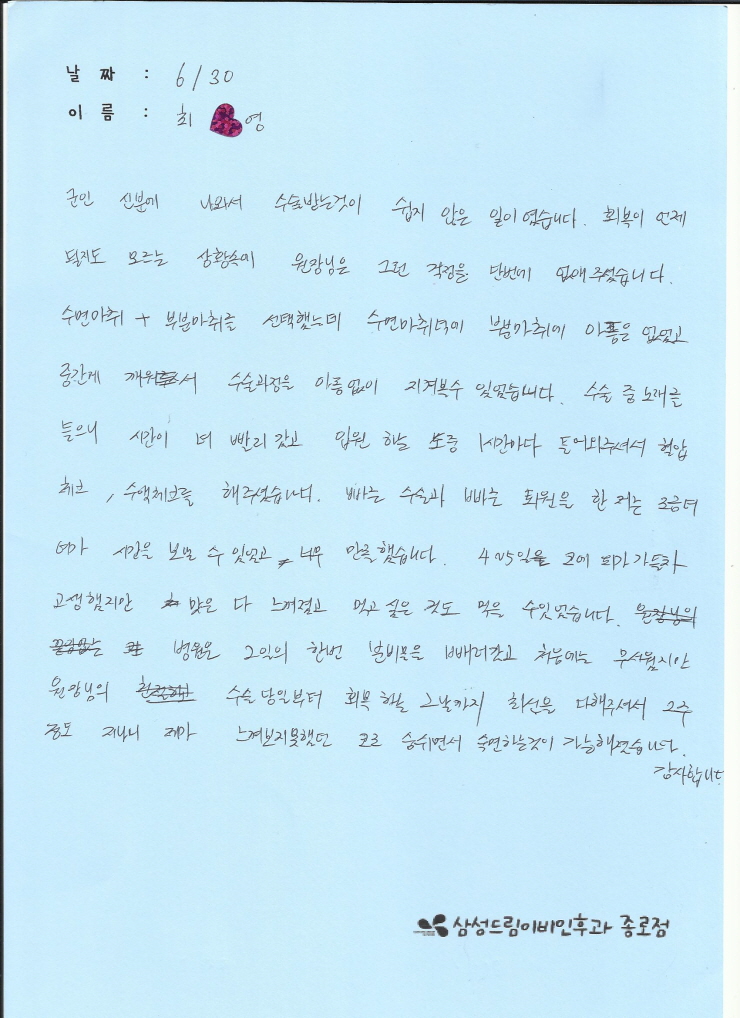 날 짜 : 6/30
이 름 : 최 영
군인 신분에 나와서 수술받는것이 쉽지 않은 일이였습니다. 회복이 언제
될지도 모르는 상황속에 원장님은 그런 걱정을 단번에 없애주셨습니다.
수면마취 + 부분마취를 선택했는데 수면마취덕에 부분마취에 아픔은 없었고
중간에 깨워주셔서 수술과정을 아픔없이 지켜볼수 있었습니다. 수술 중 노래를
들으니 시간이 더 빨리 갔고 입원 하는 도중 1시간마다 들어와주셔서 혈압
체크, 수액체크를 해주셨습니다. 빠른 수술과 빠른 회원을 한 저는 조금더
시간을 보낼 수 있었고 너무 만족했습니다. 4~5일을 코에 피가 가득차
고생했지만 맛은 다 느껴졌고 먹고 싶은 것도 먹을 수있었습니다.
병원은 2일의 한번 방문을 빼러갔고 처음에는 무서웠지만
원장님의 수술 당일부터 회복 하는 그날까지 최선을 다해주셔서 2주
정도 지나니 제가 느껴보지못했던 코로 숨쉬면서 숙면하는것이 가능해졌습니다.
감사합니다
삼성드림이비인후과 종로점